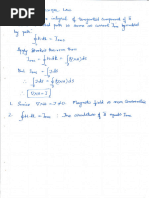 integral of tangential component of B
closed path is same as current Ienc enclosed
by path:
∮H.dl = Ienc
Apply Stoke's theorem then
Ienc = ∮H.dl = ∫(∇×H).ds
But Ienc = ∫J.ds
∴ ∫J.ds = ∫(∇×H).ds
∴ ∇×H = J
1. Since ∇×H ≠ 0 Magnetic field is non conservative
2. ∮H.dl = Ienc : The circulation of H equals Ienc.